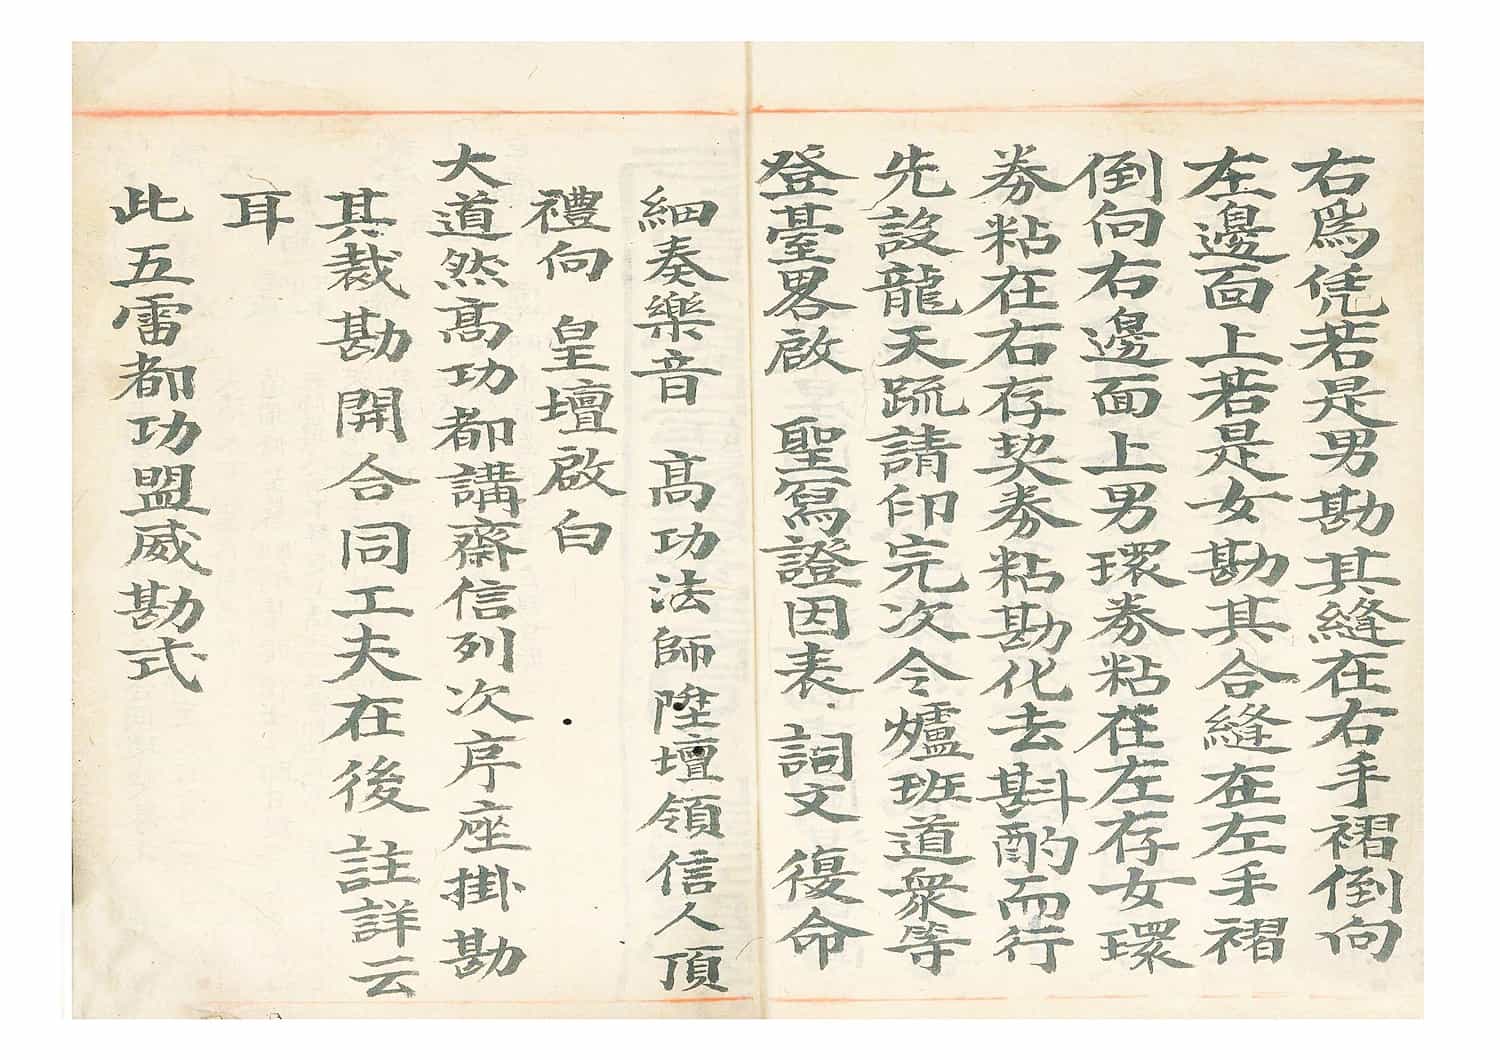 右爲凭若是男勘其縫在右手褶倒向
左邊面上若是女勘其合縫在左手褶
倒向右邊面上男環券粘在左存女環
券粘在右存契券粘勘化去斟酌而行
先設龍天疏請印完次令爐班道衆等
登臺畧啟 聖寫證因表詞文 復命
細奏樂音 高功法師陞壇領信人頂
禮向 皇壇啟白
大道然高功都講齋信列次序座掛勘
其裁勘開合同工夫在後註詳云
耳
此五雷都功盟威勘式